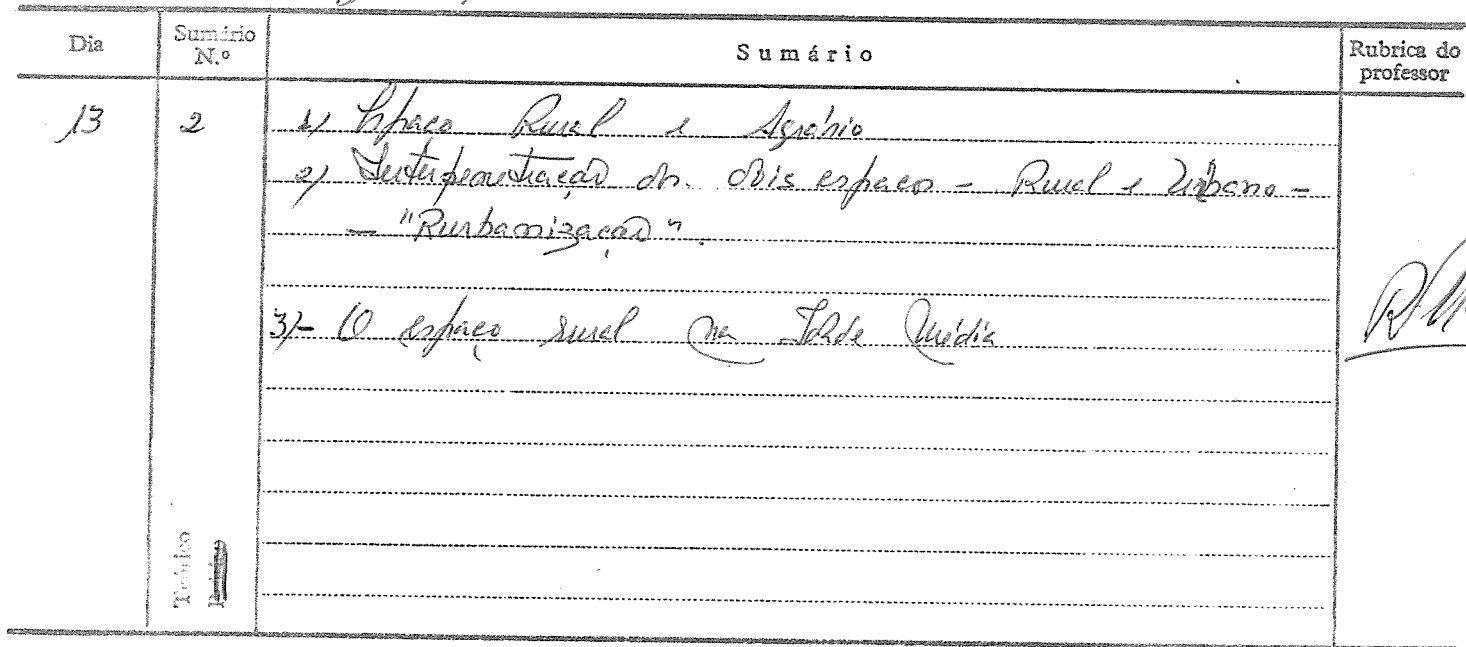 Dia Sumário N.º Sumário Rubrica do professor
13 2 1) Espaço Rural e Agrário
2) Interpenetração dos dois espaços - Rural e Urbano -
- "Rurbanização".
3)- O espaço rural na Idade Média
Teórico